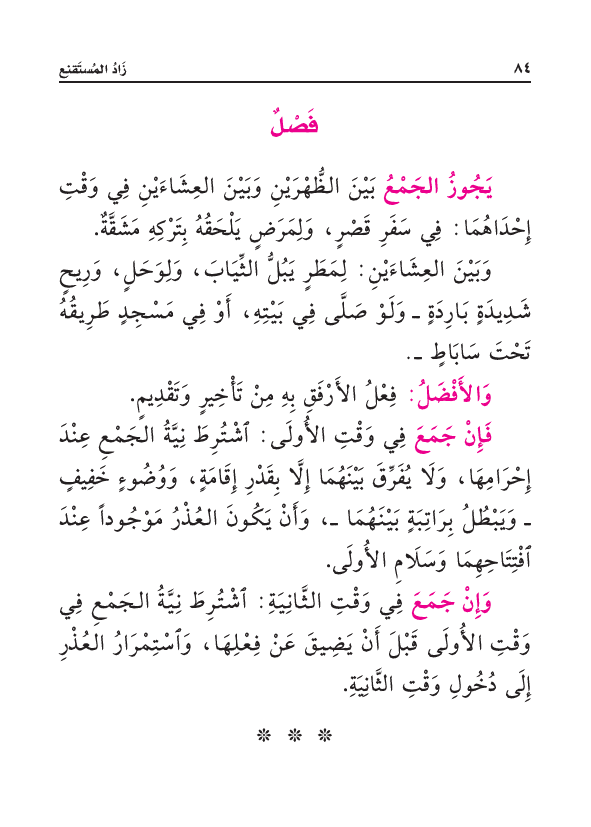 ٨٤ زَادُ المُستَقنِع
فَصْلٌ
يَجُوزُ الجَمْعُ بَيْنَ الظُّهْرَيْنِ وَبَيْنَ العِشَاءَيْنِ فِي وَقْتِ
إِحْدَاهُمَا: فِي سَفَرِ قَصْرٍ، وَلِمَرَضٍ يَلْحَقُهُ بِتَرْكِهِ مَشَقَّةٌ.
وَبَيْنَ العِشَاءَيْنِ: لِمَطَرٍ يَبُلُّ الثِّيَابَ، وَلِوَحَلٍ، وَرِيحٍ
شَدِيدَةٍ بَارِدَةٍ ـ وَلَوْ صَلَّى فِي بَيْتِهِ، أَوْ فِي مَسْجِدٍ طَرِيقُهُ
تَحْتَ سَابَاطٍ ـ.
وَالأَفْضَلُ: فِعْلُ الأَرْفَقِ بِهِ مِنْ تَأْخِيرٍ وَتَقْدِيمٍ.
فَإِنْ جَمَعَ فِي وَقْتِ الأُولَى: ٱشْتُرِطَ نِيَّةُ الجَمْعِ عِنْدَ
إِحْرَامِهَا، وَلَا يُفَرِّقَ بَيْنَهُمَا إِلَّا بِقَدْرِ إِقَامَةٍ، وَوُضُوءٍ خَفِيفٍ
ـ وَيَبْطُلُ بِرَاتِبَةٍ بَيْنَهُمَا ـ، وَأَنْ يَكُونَ العُذْرُ مَوْجُوداً عِنْدَ
ٱفْتِتَاحِهِمَا وَسَلَامِ الأُولَى.
وَإِنْ جَمَعَ فِي وَقْتِ الثَّانِيَةِ: ٱشْتُرِطَ نِيَّةُ الجَمْعِ فِي
وَقْتِ الأُولَى قَبْلَ أَنْ يَضِيقَ عَنْ فِعْلِهَا، وَٱسْتِمْرَارُ العُذْرِ
إِلَى دُخُولِ وَقْتِ الثَّانِيَةِ.
❊ ❊ ❊